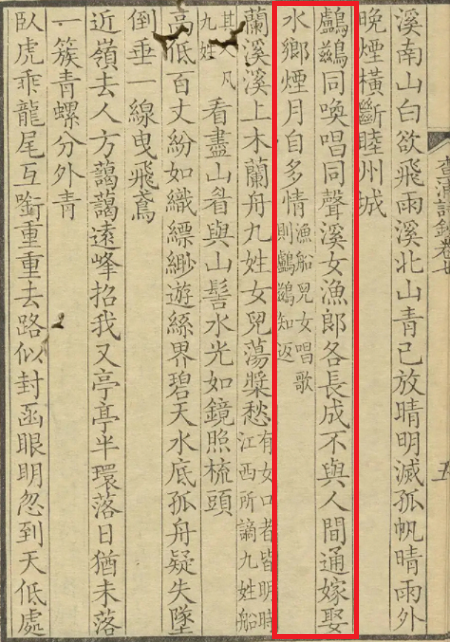 查浦詩鈔卷七
五
溪南山白欲飛雨溪北山青已放晴明滅孤帆晴雨外
晚煙橫斷睦州城
鸕鷀同喚唱同聲溪女漁郎各長成不與人間通嫁娶
水鄉煙月自多情漁船兒女唱歌
則鸕鷀知返
蘭溪溪上木蘭舟九姓女兒蕩槳愁有女口者皆明時
江西所謫九姓船
其凡
九姓看盡山眉與山髻水光如鏡照梳頭
高低百丈紛如織縹緲遊絲界碧天水底孤舟疑失墜
倒垂一線曳飛鳶
近嶺去人方藹藹遠峰招我又亭亭半環落日猶未落
一簇青螺分外青
臥虎乘龍尾互銜重重去路似封函眼明忽到天低處